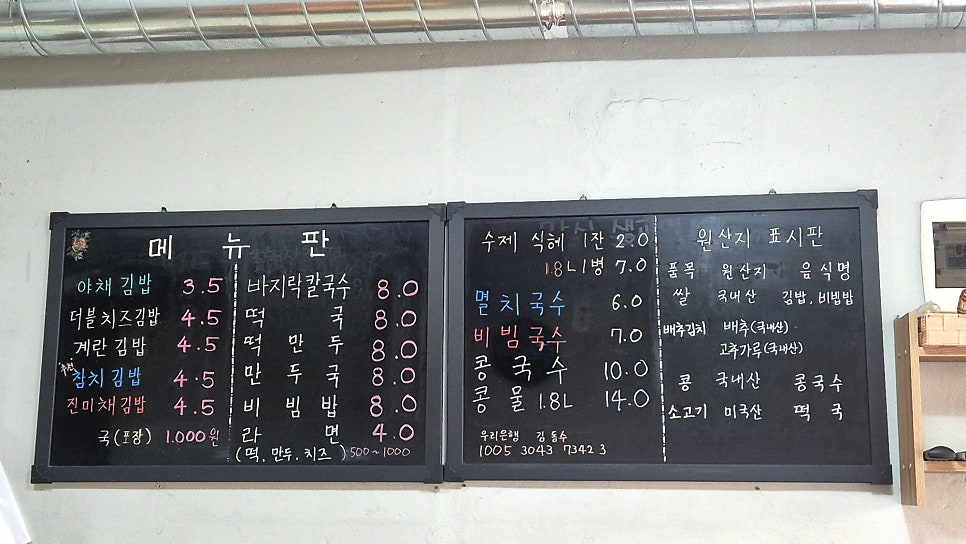 메 뉴 판
야채 김밥 3.5
더블치즈김밥 4.5
계란 김밥 4.5
추천
참치 김밥 4.5
진미채김밥 4.5
국(포장) 1.000원
바지락칼국수 8.0
떡 국 8.0
떡 만 두 8.0
만 두 국 8.0
비 빔 밥 8.0
라 면 4.0
(떡.만두.치즈) 500~1000
수제 식혜 1잔 2.0
1.8L 1병 7.0
멸치국수 6.0
비빔국수 7.0
콩 국 수 10.0
콩 물 1.8L 14.0
우리은행 김동수
1005 3043 7342 3
원산지 표시판
품목 원산지 음식명
쌀 국내산 김밥.비빔밥
배추김치 배추(국내산).
고추가루(국내산)
콩 국내산 콩국수
소고기 미국산 떡 국